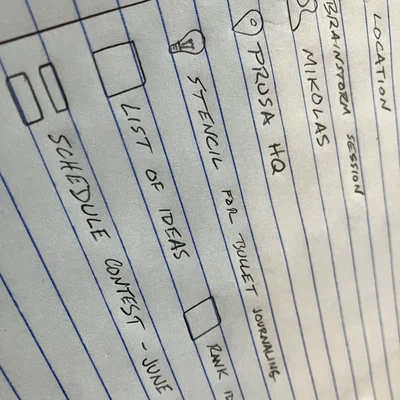 LOCATION
BRAINSTORM SESSION
MIKOLAS
PRUSA HQ
STENCIL FOR BULLET JOURNALING
LIST OF IDEAS
RANK
SCHEDULE CONTEST - JUNE